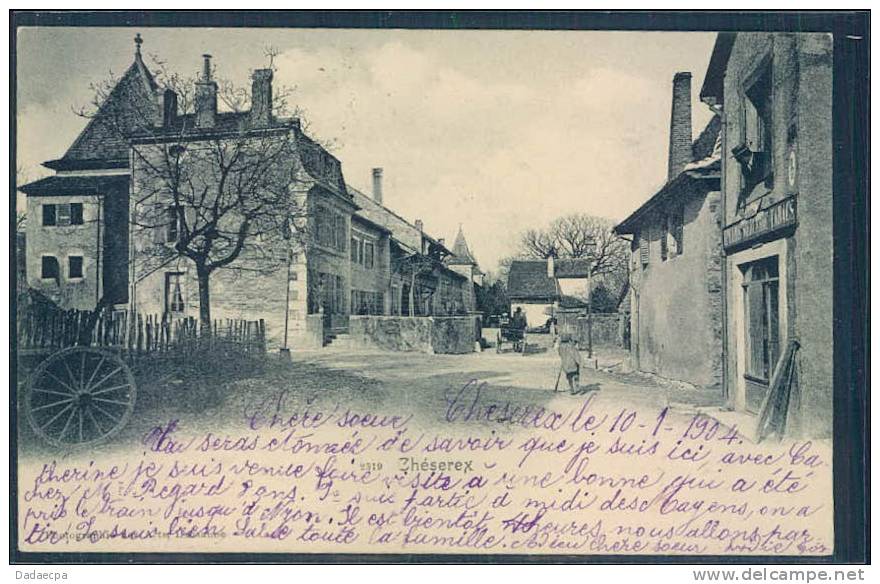 TABACS
Chère soeur Cheserex le 10-1-1904
Tu seras étonnée de savoir que je suis ici avec Ca-
therine je suis venue faire visite a une bonne qui a été
chez Mme Pegard 7 ans. Je suis partie a midi des Cagens, on a
pris le train jusqu'a Nyon. Il est bientôt heures nous allons par
tir. Je suis bien Salue toute la famille. Adieu chère soeur
2319 Chéserex
Dadaecpa
www.delcampe.net